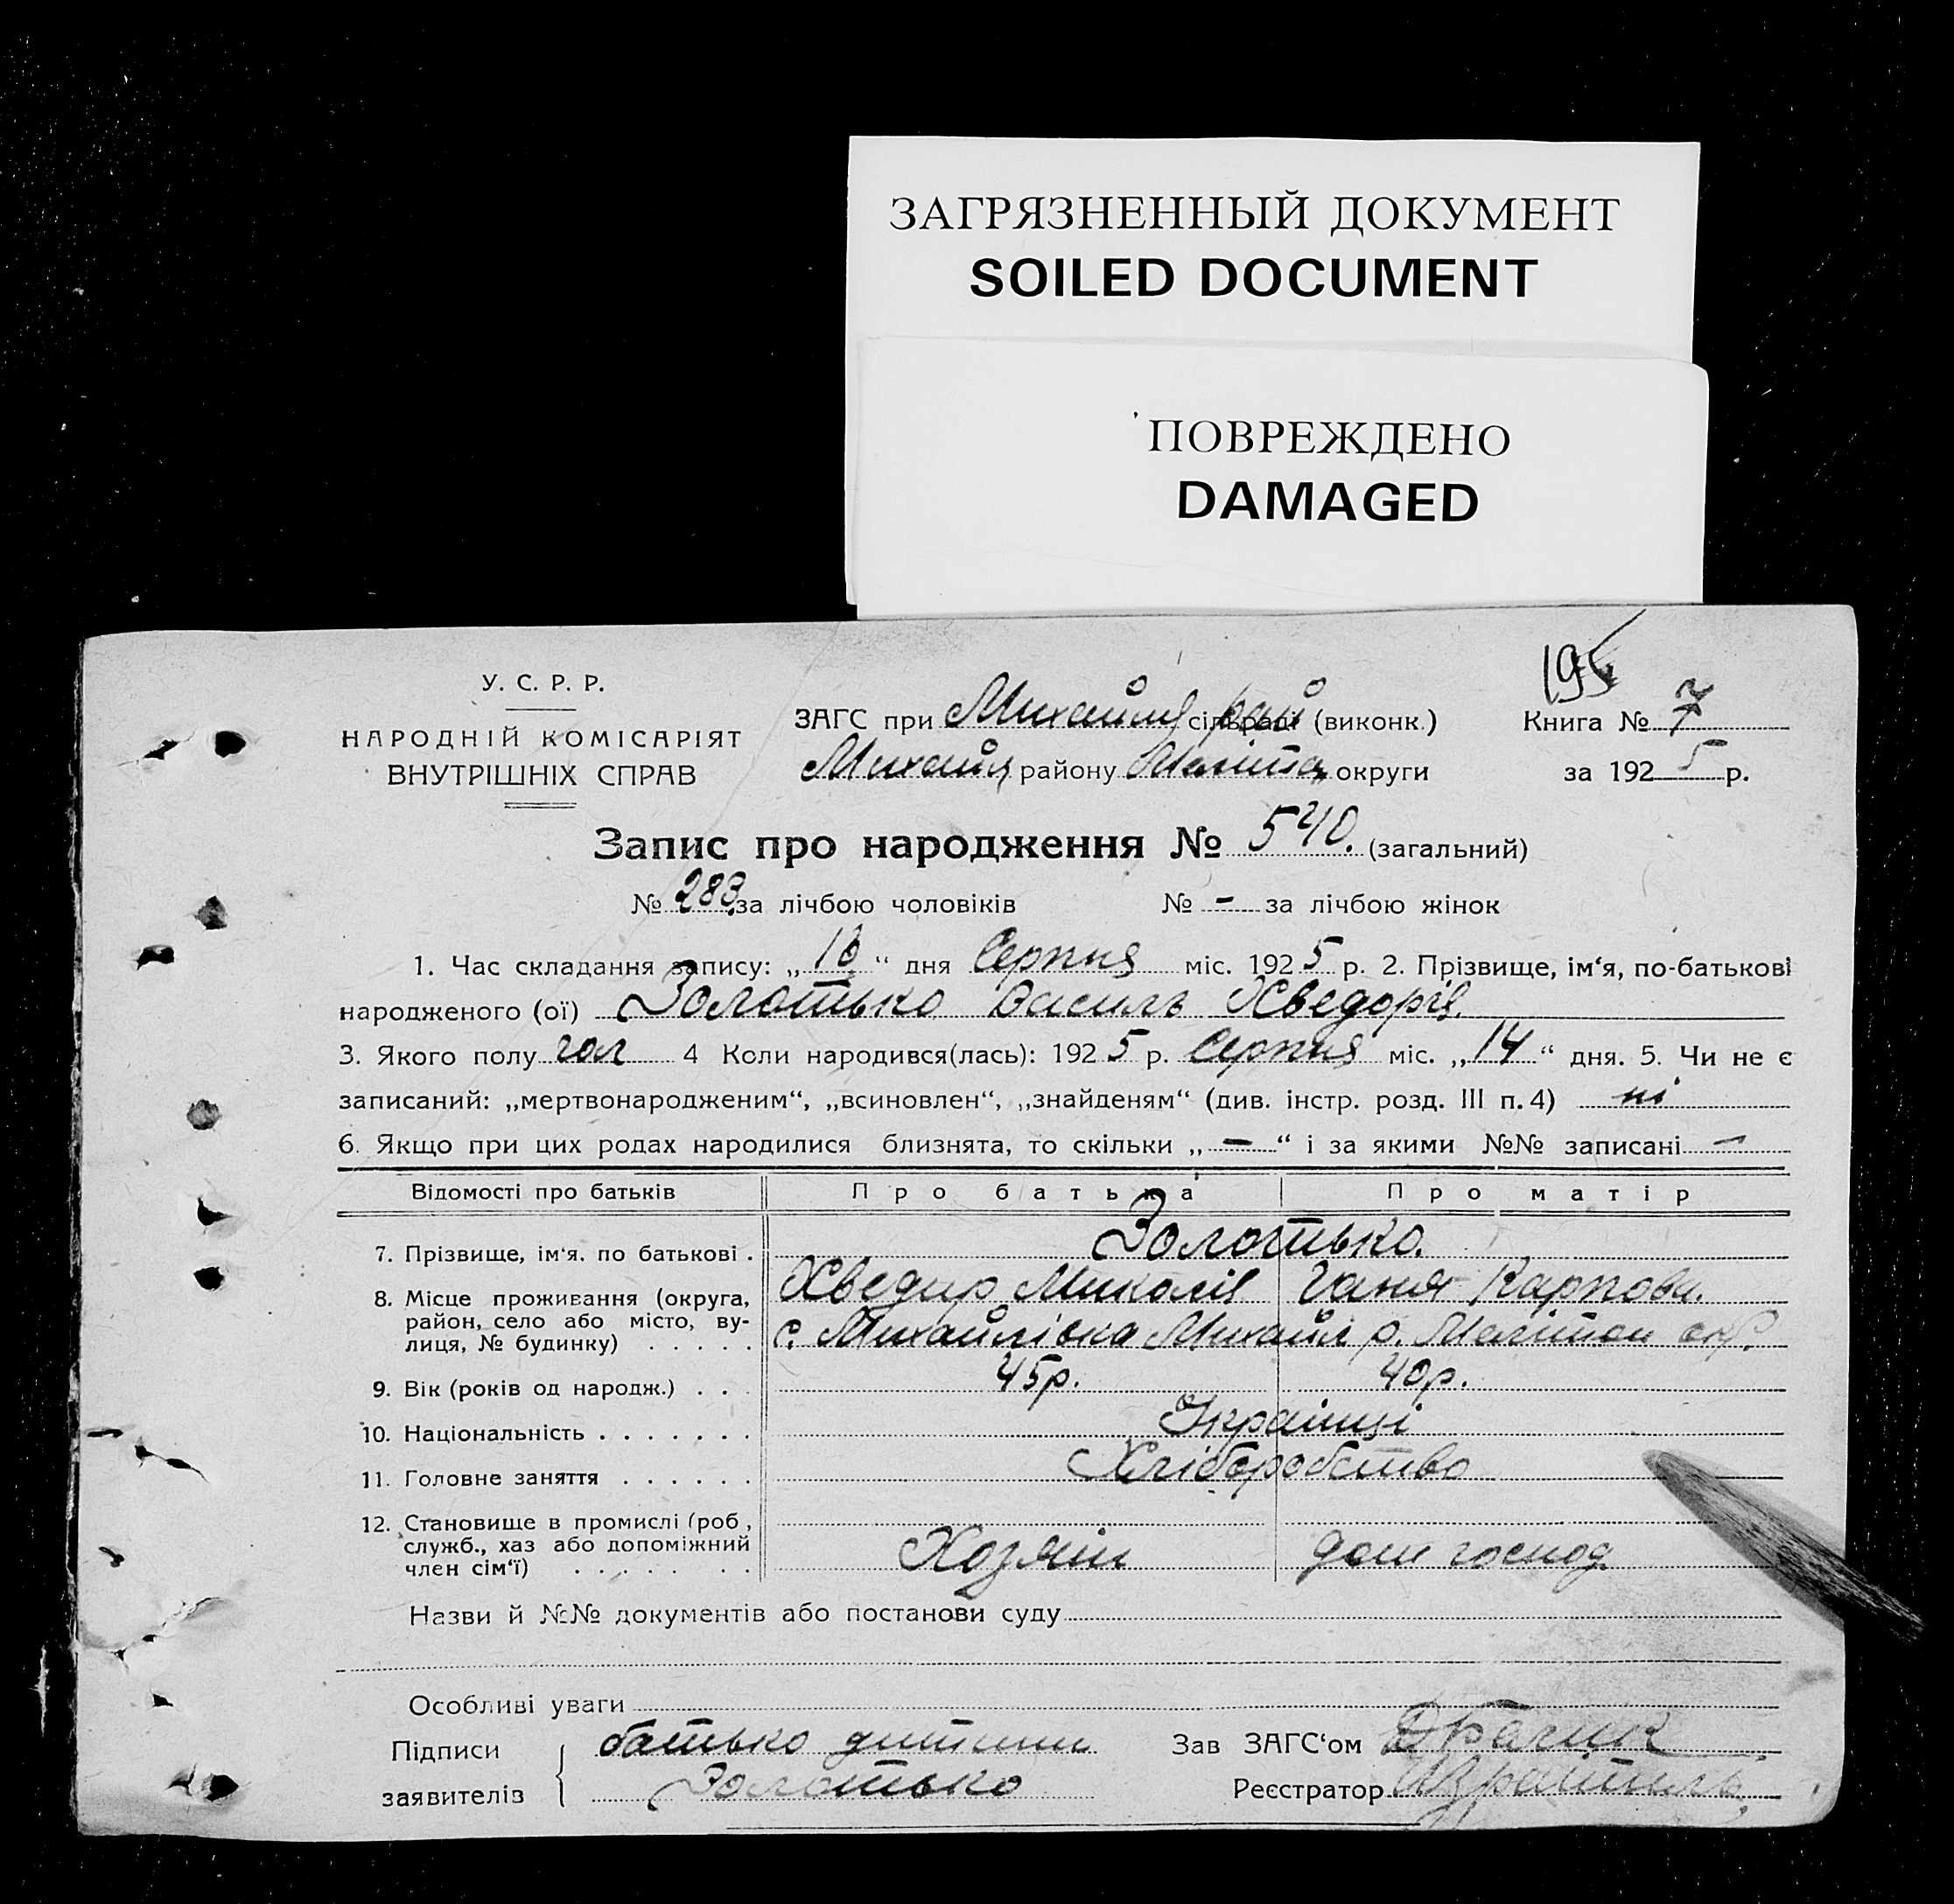 ЗАГРЯЗНЕННЫЙ ДОКУМЕНТ
SOILED DOCUMENT
ПОВРЕЖДЕНО
DAMAGED
195
У. С. Р. Р.
НАРОДНІЙ КОМІСАРІЯТ
ВНУТРІШНІХ СПРАВ
ЗАГС при Михайл рай сільраді (виконк.) Книга № 7
Михайл району Меліто округи за 1925 р.
Запис про народження № 540. (загальний)
№ 283 за лічбою чоловіків № – за лічбою жінок
1. Час складання запису: „16“ дня Серпня міс. 1925 р. 2. Прізвище, ім‘я, по-батькові
народженого (ої) Золотько Василь Хведорів.
3. Якого полу чол 4 Коли народився(лась): 1925 р. Серпня міс. „14“ дня. 5. Чи не є
записаний: „мертвонародженим“, „всиновлен“, „знайденям“ (див. інстр. розд. III п. 4) ні
6. Якщо при цих родах народилися близнята, то скільки „–“ і за якими №№ записані –
Відомості про батьків Про батька Про матір
7. Прізвище, ім‘я. по батькові . Золотько.
Хведир Миколів Ганя Карпови.
8. Місце проживання (округа, район, село або місто, ву-
лиця, № будинку) . . . . . с. Михайлівка Михайл р. Мелітоп окр.
9. Вік (років од народж.) . . . 45р. 40р.
10. Національність . . . . . . . Українці
11. Головне заняття . . . . . . Хліборобство
12. Становище в промислі (роб.,
служб., хаз або допоміжний
член сім‘ї) . . . . . . . Хозяин дом господ.
Назви й №№ документів або постанови суду
Особливі уваги
Підписи батько дитини Зав ЗАГС‘ом
заявителів Золотько Реєстратор